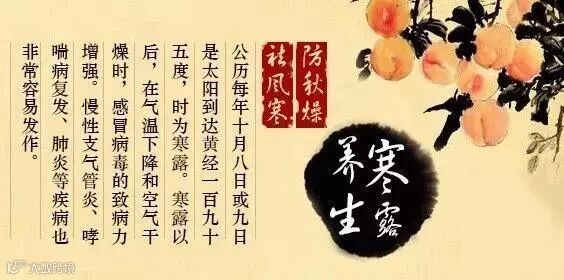 防秋燥
祛风寒
寒露
养生
公历每年十月八日或九日
是太阳到达黄经一百九十
五度，时为寒露。寒露以
后，在气温下降和空气干
燥时，感冒病毒的致病力
增强。慢性支气管炎、哮
喘病复发、肺炎等疾病也
非常容易发作。
大数跨境